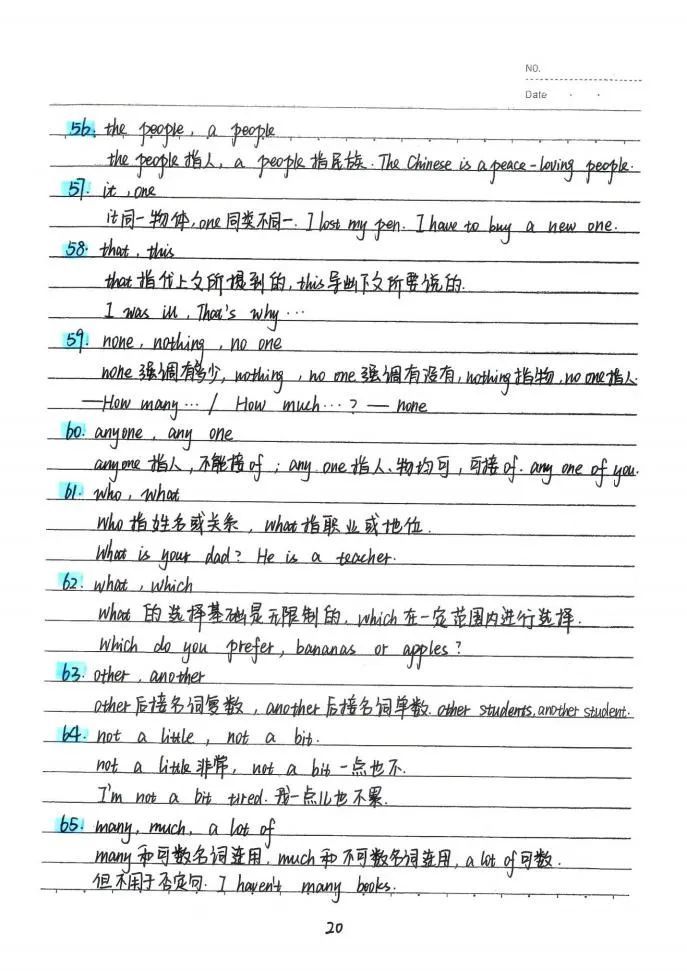 NO.
Date . .
56. the people, a people
the people 指人, a people 指民族. The Chinese is a peace-loving people.
57. it, one
it同一物体, one 同类不同一. I lost my pen. I have to buy a new one.
58. that, this
that 指代上文所提到的, this导出下文所要说的.
I was ill, That's why …
59. none, nothing, no one
none 强调有多少, nothing, no one 强调有没有, nothing指物, no one指人.
—How many … / How much … ? — none
60. anyone, any one
anyone 指人, 不能接of; any one 指人、物均可, 可接of. any one of you.
61. who, what
who 指姓名或关系, what 指职业或地位.
What is your dad? He is a teacher.
62. what, which
what 的选择基础是无限制的, which 在一定范围内进行选择.
Which do you prefer, bananas or apples?
63. other, another
other 后接名词复数, another 后接名词单数. other students, another student.
64. not a little, not a bit.
not a little 非常, not a bit 一点也不.
I'm not a bit tired. 我一点儿也不累.
65. many, much, a lot of
many 和可数名词连用, much 和不可数名词连用, a lot of 可数.
但不用于否定句. I haven't many books.
20